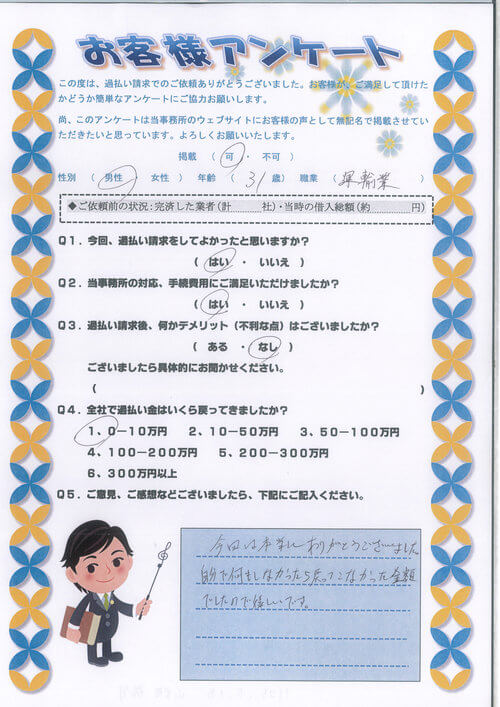 お客様アンケート
この度は、過払い請求でのご依頼ありがとうございました。お客様が、ご満足して頂けた
かどうか簡単なアンケートにご協力お願いします。
尚、このアンケートは当事務所のウェブサイトにお客様の声として無記名で掲載させてい
ただきたいと思っています。よろしくお願いいたします。
掲載 ( 可 ・ 不可 )
性別 ( 男性 ・ 女性 ) 年齢 ( 31 歳) 職業 ( 運輸業 )
◆ご依頼前の状況:完済した業者(計 社)・当時の借入総額(約 円)
Q1.今回、過払い請求をしてよかったと思いますか?
( はい ・ いいえ )
Q2.当事務所の対応、手続費用にご満足いただけましたか?
( はい ・ いいえ )
Q3.過払い請求後、何かデメリット(不利な点)はございましたか?
( ある ・ なし )
ございましたら具体的にお聞かせください。
( )
Q4.全社で過払い金はいくら戻ってきましたか?
1、0-10万円 2、10-50万円 3、50-100万円
4、100-200万円 5、200-300万円
6、300万円以上
Q5.ご意見、ご感想などございましたら、下記にご記入ください。
今回は本当にありがとうございました
自分で何もしなかったら戻ってこなかった金額
でしたので嬉しいです。